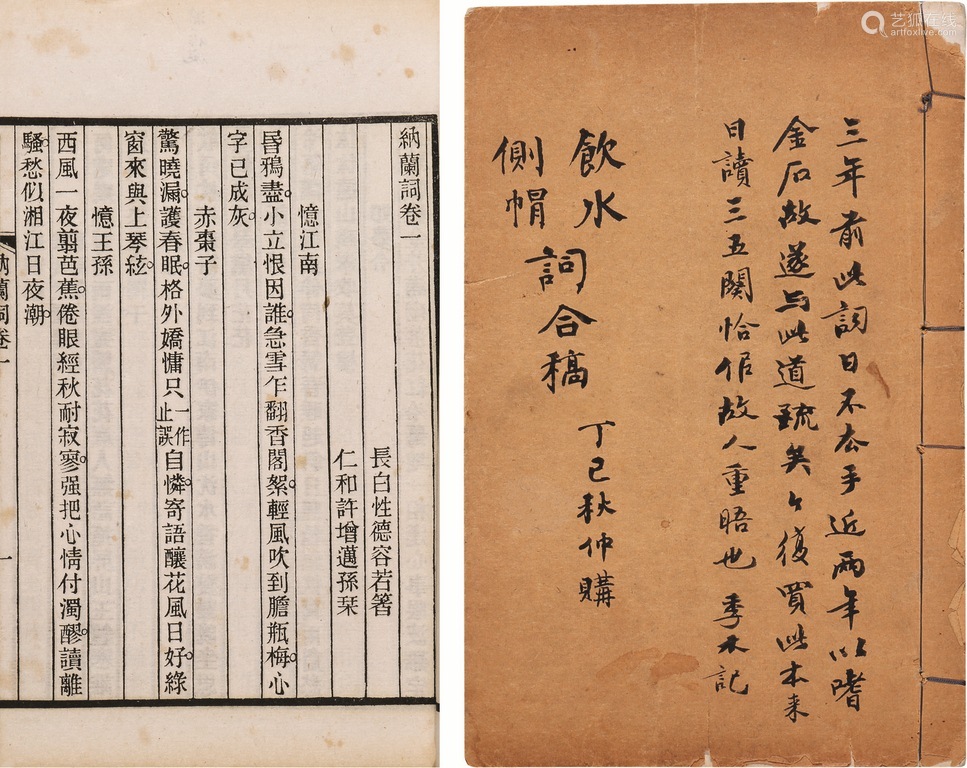 納蘭詞卷一
長白性德容若著
仁和許增邁孫栞
憶江南
昏鴉盡。小立恨因誰。急雪乍翻香閣絮。輕風吹到膽瓶梅。心
字已成灰。
赤棗子
驚曉漏。護春眠。格外嬌慵只一作止誤自憐。寄語釀花風日好。綠
窗來與上琴絃。
憶王孫
西風一夜翦芭蕉。倦眼經秋耐寂寥。强把心情付濁醪。讀離
騷。愁似湘江日夜潮。
納蘭詞卷一
一
三年前此詞日不去手近兩年以嗜
金石故遂与此道疏矣今復買此本来
日讀三五闋恰似故人重晤也 季木記
飲水
側帽
詞合稿
丁巳秋仲購
艺狐在线
artfoxlive.com